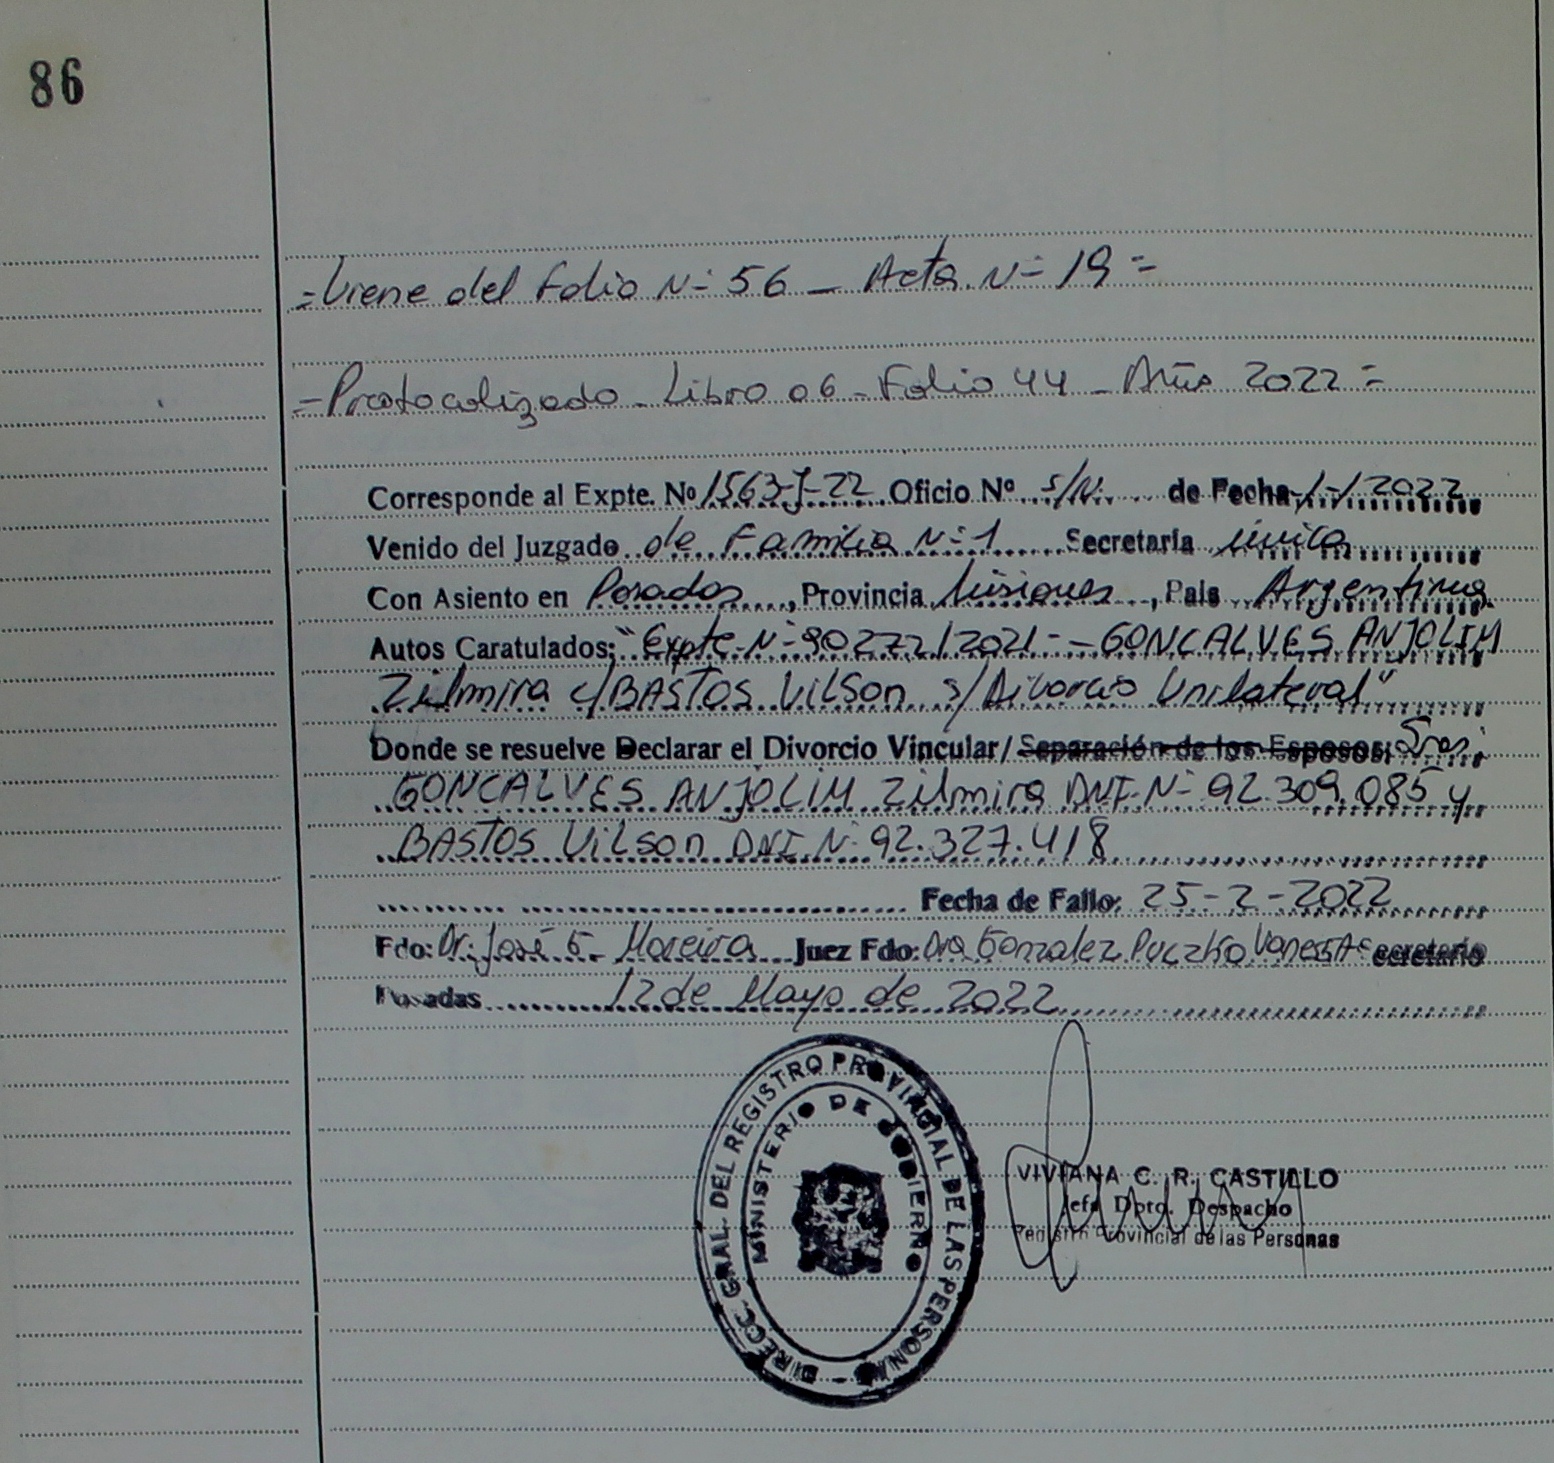 86
=Viene del folio N- 56 - Acta N- 19=
=Protocolizado - Libro 06 - Folio 44 - Año 2022=
Corresponde al Expte. Nº 1563-J-22 Oficio Nº S/N. de Fecha -/-/2022
Venido del Juzgado de Familia N-1 Secretaría única
Con Asiento en Posadas, Provincia Misiones, País Argentina
Autos Caratulados: "Expte N-90272/2021- -GONCALVES ANJOLIM
Zilmira c/BASTOS Vilson s/Divorcio Unilateral"
Donde se resuelve Declarar el Divorcio Vincular/Separación de los Esposos: Sres.
GONCALVES ANJOLIM Zilmira DNI-N- 92.309.085 y
BASTOS Vilson DNI.N- 92.327.418
Fecha de Fallo: 25-2-2022
Fdo: Dr. José G. Moreira Juez Fdo: Dra Gonzalez Vanessa Secretario
Posadas 12 de Mayo de 2022
DIRECC. GRAL. DEL REGISTRO PROVINCIAL DE LAS PERSONAS -
MINISTERIO DE GOBIERNO
VIVIANA C. R. CASTILLO
Jefe Dpto. Despacho
Registro Provincial de las Personas